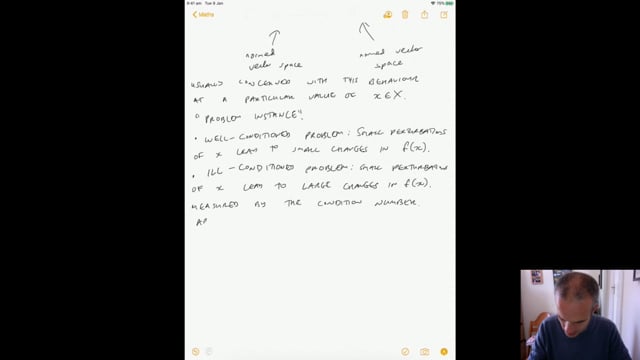 9:41 am Tue 9 Jan
75%
Maths
normed vector space
normed vector space
USUALLY CONCERNED WITH THIS BEHAVIOUR
AT A PARTICULAR VALUE OF x ∈ X.
"PROBLEM INSTANCE".
• WELL-CONDITIONED PROBLEM: SMALL PERTURBATIONS
OF x LEAD TO SMALL CHANGES IN f(x).
• ILL-CONDITIONED PROBLEM: SMALL PERTURBATIONS
OF x LEAD TO LARGE CHANGES IN f(x).
MEASURED BY THE CONDITION NUMBER.